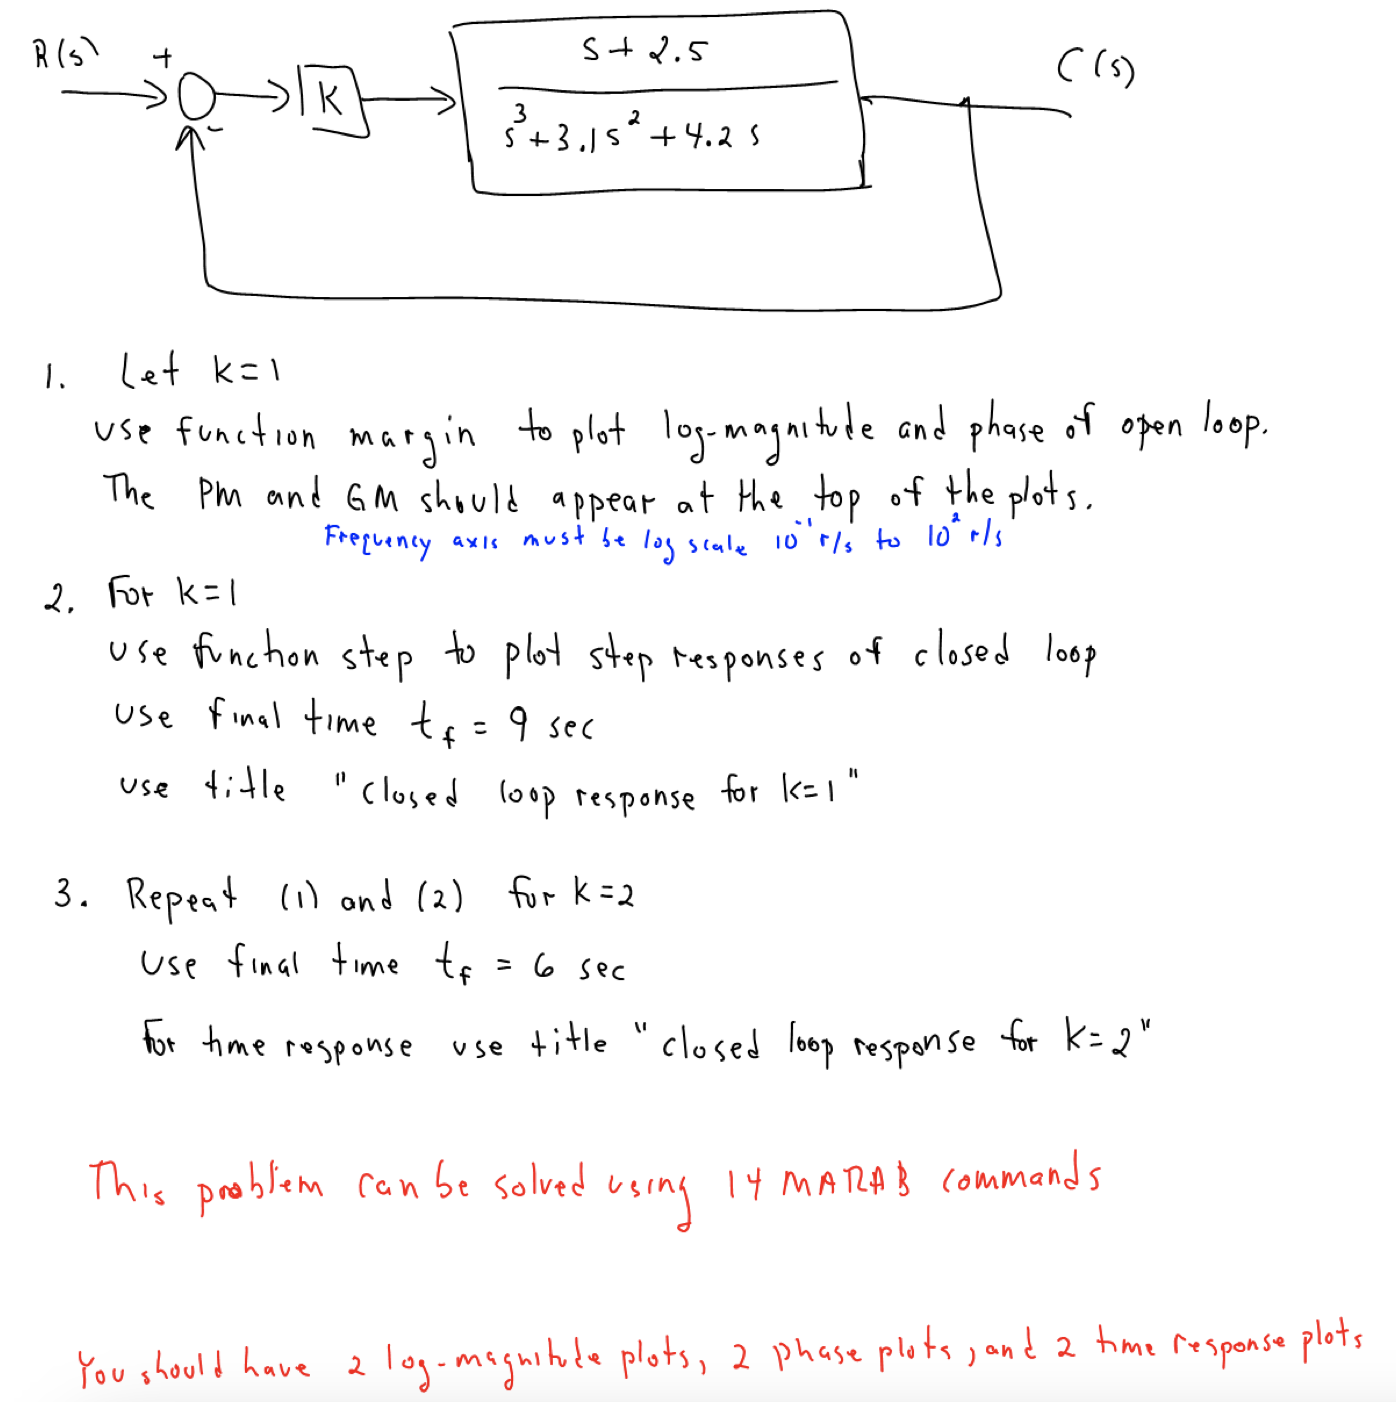 R(s) + C(s)
K
s + 2.5
s³ + 3.1s² + 4.2 s
-
1. Let k=1
use function margin to plot log-magnitude and phase of open loop.
The PM and GM should appear at the top of the plots.
Frequency axis must be log scale 10⁻¹ r/s to 10² r/s
2. For k=1
use function step to plot step responses of closed loop
use final time t_f = 9 sec
use title "closed loop response for k=1"
3. Repeat (1) and (2) for k=2
use final time t_f = 6 sec
For time response use title "closed loop response for k=2"
This problem can be solved using 14 MATLAB commands
You should have 2 log-magnitude plots, 2 phase plots, and 2 time response plots